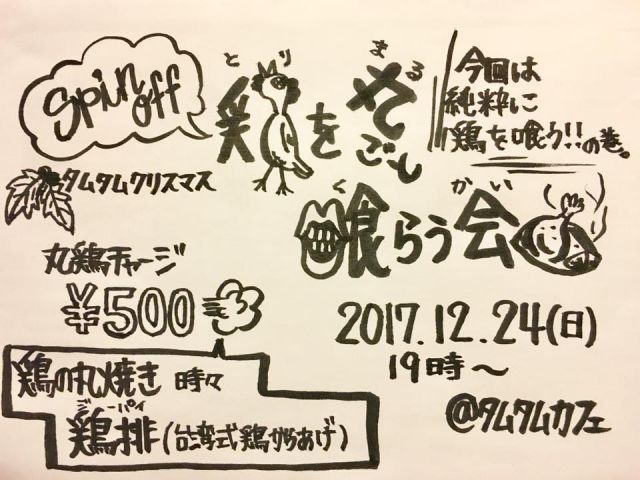 Spin off
鶏を丸ごと
とり まる
喰らう会
く かい
今回は
純粋に
鶏を喰らう!!の巻。
タムタムクリスマス
丸鶏チャージ
¥500
2017.12.24(日)
19時〜
@タムタムカフェ
鶏の丸焼き 時々
ジーパイ
鶏排(台湾式鶏からあげ)